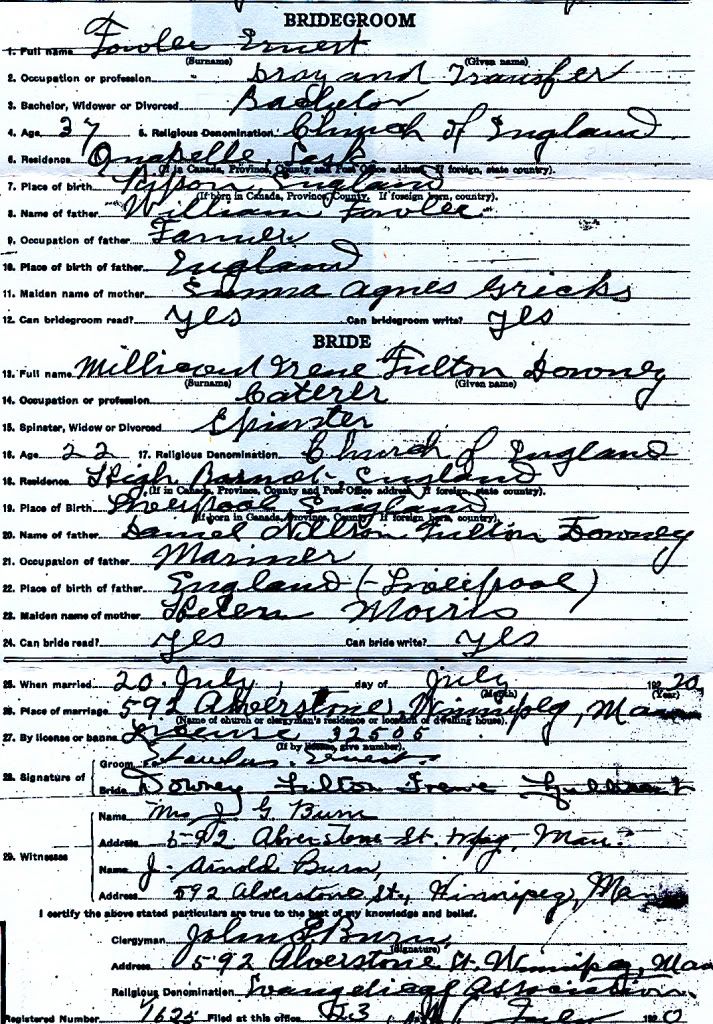 BRIDEGROOM
1. Full name Fowler Ernest
(Surname) (Given name)
2. Occupation or profession Dray and Transfer
3. Bachelor, Widower or Divorced Bachelor
4. Age 37 5. Religious Denomination Church of England
6. Residence Qnapelle, Sask
(If in Canada, Province, County and Post Office address. If foreign, state country).
7. Place of birth England
(If born in Canada, Province, County. If foreign born, country).
8. Name of father William Fowler
9. Occupation of father Farmer
10. Place of birth of father England
11. Maiden name of mother Emma Agnes Gricks
12. Can bridegroom read? yes Can bridegroom write? yes
BRIDE
13. Full name Millicent Irene Fulton Downey
(Surname) (Given name)
14. Occupation or profession Caterer
15. Spinster, Widow or Divorced Spinster
16. Age 22 17. Religious Denomination Church of England
18. Residence High Barnet England
(If in Canada, Province, County and Post Office address. If foreign, state country).
19. Place of Birth Liverpool England
(If born in Canada, Province, County. If foreign born, country).
20. Name of father Daniel Fulton Downey
21. Occupation of father Mariner
22. Place of birth of father England (-Liverpool)
23. Maiden name of mother Helen Morris
24. Can bride read? yes Can bride write? yes
25. When married 20 July day of July 1920
(Month) (Year)
26. Place of marriage 592 Alverstone, Winnipeg, Man
(Name of church or clergyman's residence or location of dwelling house).
27. By license or banns License 32505
(If by license, give number).
28. Signature of
Groom Fowler Ernest
Bride Downey Fulton Irene
29. Witnesses
Name Mrs J G Burn
Address 592 Alverstone St Wpg, Man.
Name J. Arnold Burn,
Address 592 Alverstone St., Winnipeg, Man
I certify the above stated particulars are true to the best of my knowledge and belief.
Clergyman John Burn,
(Signature)
Address 592 Alverstone St. Winnipeg, Man
Religious Denomination Evangelical Association
Registered Number 1625 Filed at this office 23 day July 192